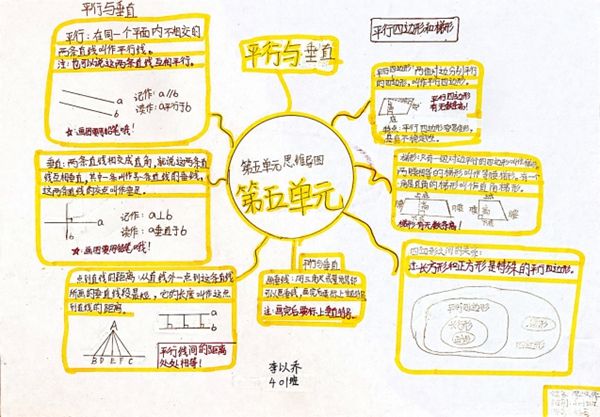 平行与垂直
平行：在同一个平面内不相交的
两条直线叫作平行线。
注：也可以说这两条直线互相平行。
a
b
记作：a∥b
读作：a平行于b
☆：画图要用铅笔哦！
垂直：两条直线相交成直角，就说这两条直
线互相垂直，其中一条叫作另一条直线的垂线，
这两条直线的交点叫作垂足。
b
a
记作：a⊥b
读作：a垂直于b
☆：画图要用铅笔哦！
点到直线的距离：从直线外一点到这条直线
所画的垂直线段最短，它的长度叫作这点
到直线的距离。
A
B D E F C
a
b
平行线间的距离
处处相等！
平行与垂直
第五单元思维导图
第五单元
平行与垂直
注：画完后要标上垂直符号
李以乔
401班
平行四边形和梯形
平行四边形：两组对边分别平行
的四边形，叫作平行四边形。
平行四边形
有无数条高！
特点：平行四边形容易变形，
具有不稳定性。
梯形：只有一组对边平行的四边形叫作梯形。
两腰相等的梯形叫作等腰梯形。有一个
角是直角的梯形叫作直角梯形。
腰
腰
梯形有无数条高！
四边形之间的关系：
注：长方形和正方形是特殊的平行四边形。
平行四边形
长方形
正方形
梯形
四边形